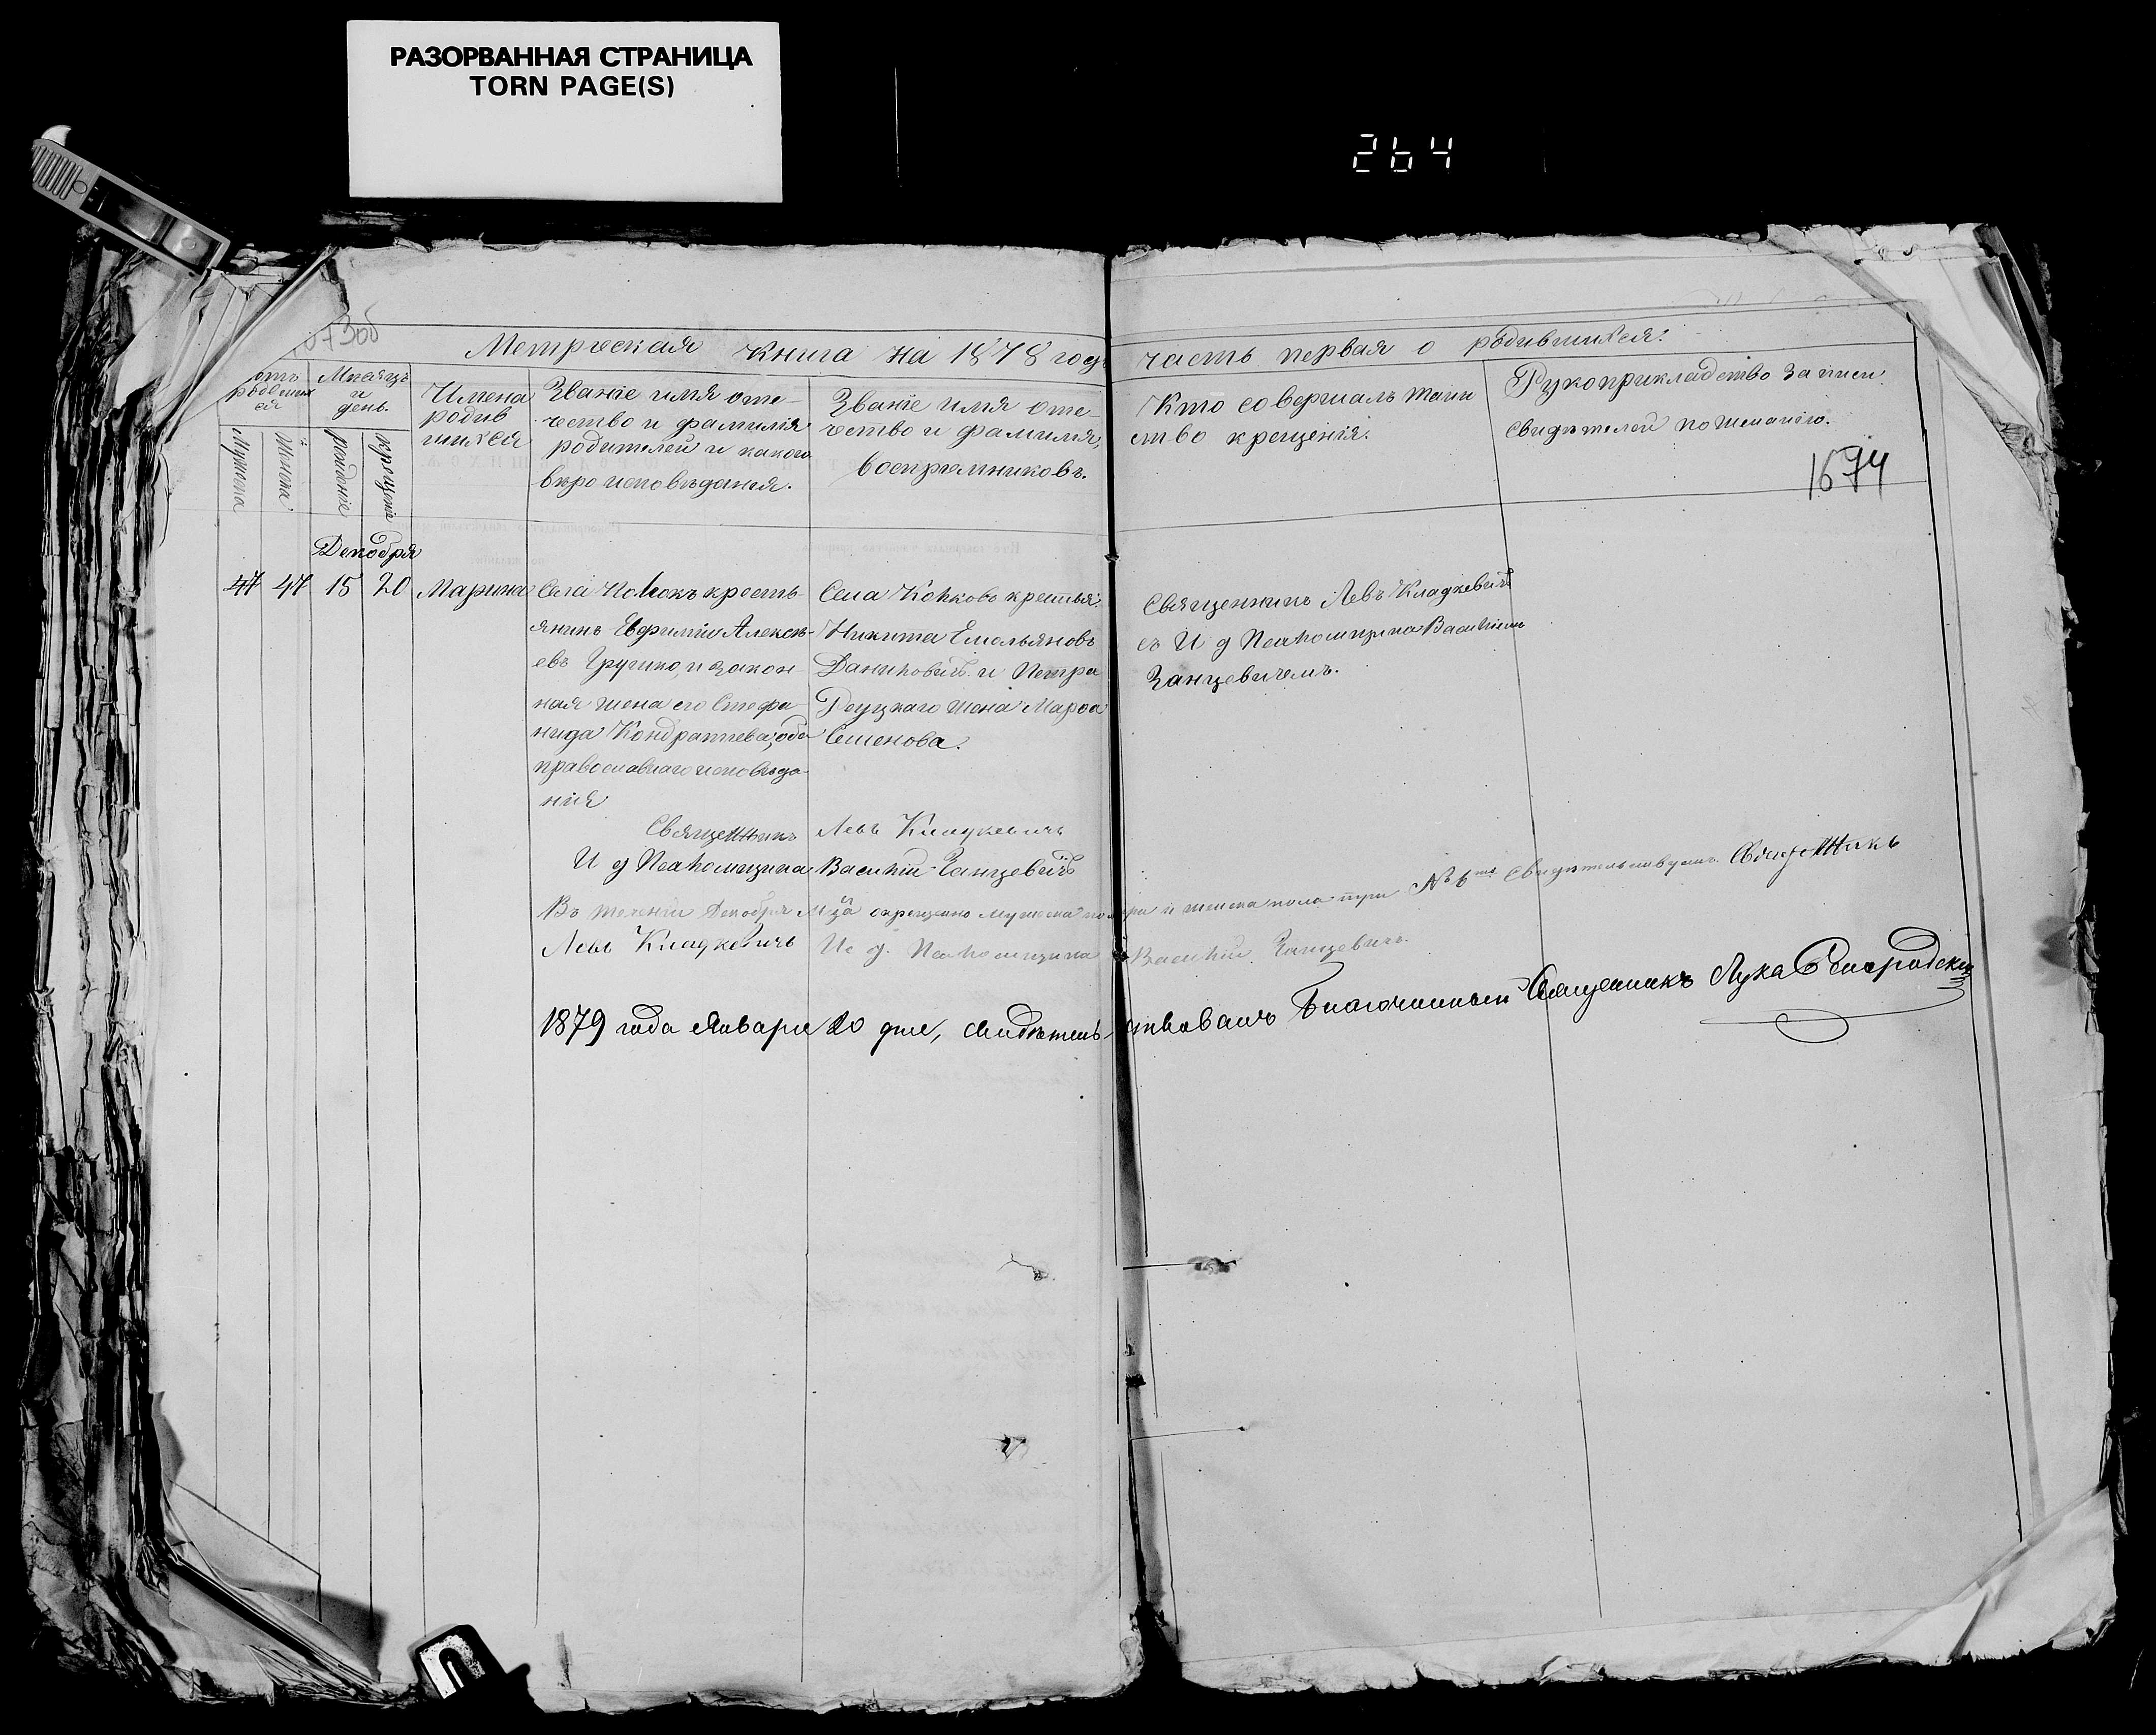 РАЗОРВАННАЯ СТРАНИЦА
TORN PAGE(S)
264
Метрическая книга на 1878 годъ часть первая о родившихся.
Мѣсяцъ и день.
Имена родившихся
Званіе имя отечество и фамилія родителей и какого вѣроисповѣданія.
Званіе имя отечество и фамилія, воспріемниковъ.
Кто совершалъ таинство крещенія.
Рукоприкладство записи свидѣтелей по желанію.
Мужеска
Женска
рожденіе
крещеніе
1674
Декабря
47 47 15 20 Марина
крестьянинъ Евфимій Алексѣевъ
и законная жена его Стефанида Кондратіева, оба
православнаго исповѣданія
Села
Никита Емельяновъ
и Петра
жена Марѳа
Семенова.
Священникъ Левъ Кладкевичъ
съ И д Псаломщика Василіемъ
Занцевичемъ.
Священникъ Левъ Кладкевичъ
И д Псаломщика Василій Занцевичъ
Въ теченіи Декабря М-ца окрещено мужеска пола и женска пола Свидѣтельствуемъ Священникъ
Левъ Кладкевичъ И. д. Псаломщика Василій Занцевичъ.
1879 года Января 20 дня, свидѣтельствовалъ Благочинный Священникъ Лука